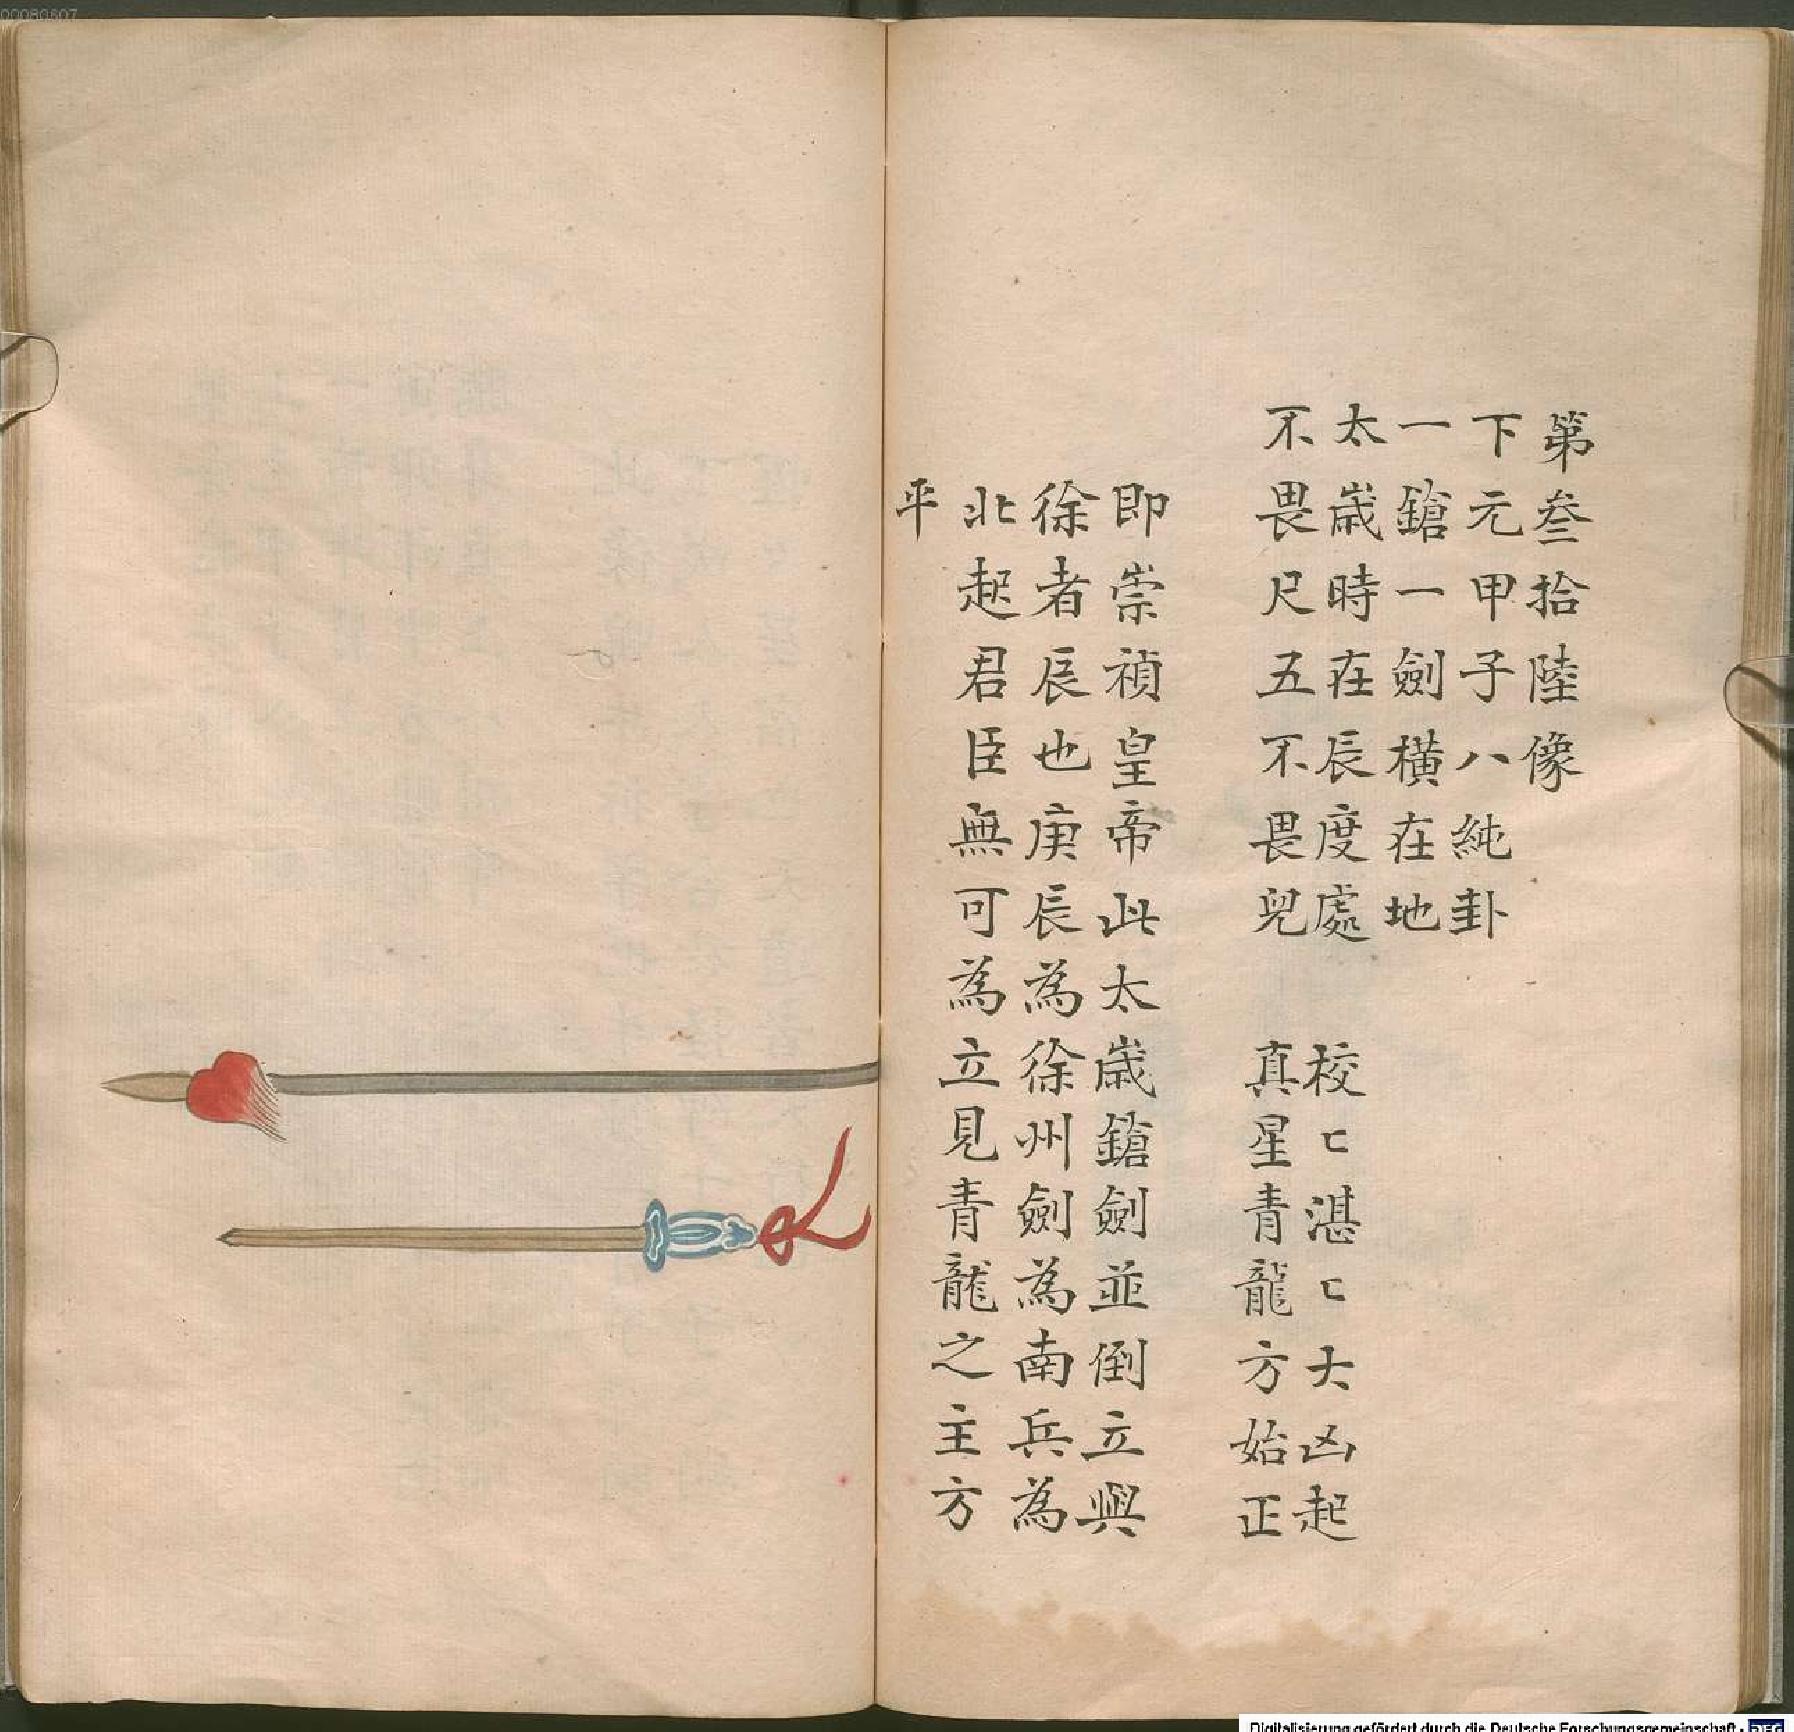 第叁拾陸像
下元甲子八純卦
一鎗一劍橫在地
太歲時在辰度處 校ㄷ湛ㄷ大凶起
不畏尺五不畏兕 真星青龍方始正
即崇禎皇帝此太歲鎗劍並倒立興
徐者辰也庚辰為徐州劍為南兵為
北起君臣無可為立見青龍之主方
平
00080607
Digitalisierung gefördert durch die Deutsche Forschungsgemeinschaft - DFG